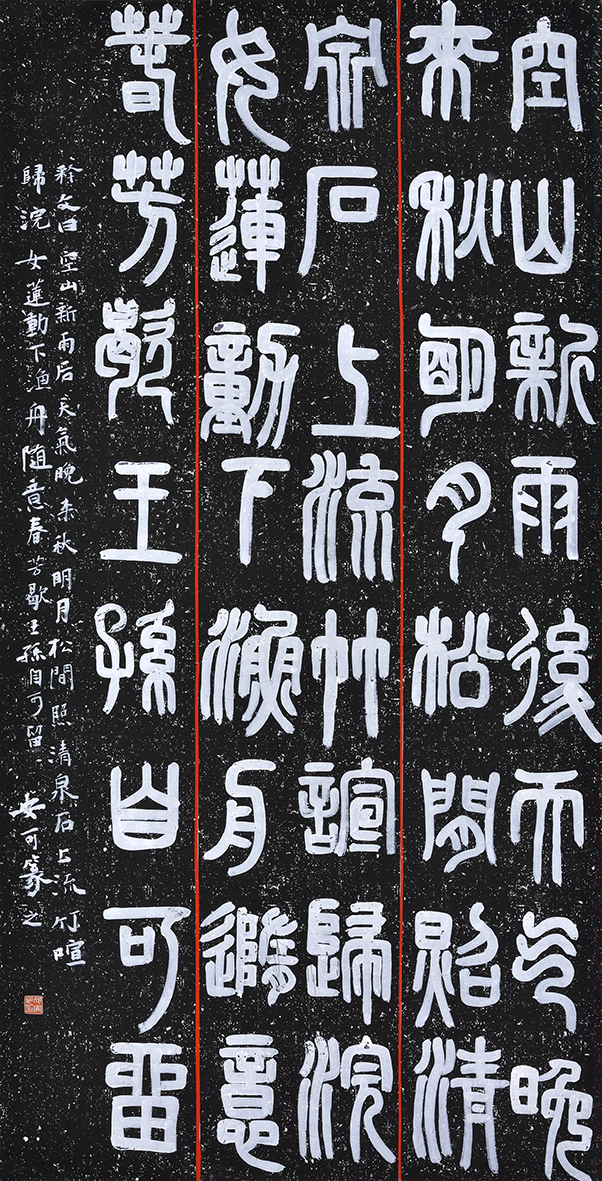 空山新雨後天气晚
來秋明月松間照清
泉石上流竹諠歸浣
女蓮動下漁舟隨意
春芳歇王孫自可留
释文曰空山新雨后天氣晚来秋明月松間照清泉石上流竹喧
歸浣女蓮動下渔舟随意春芳歇王孫自可留 安可篆之